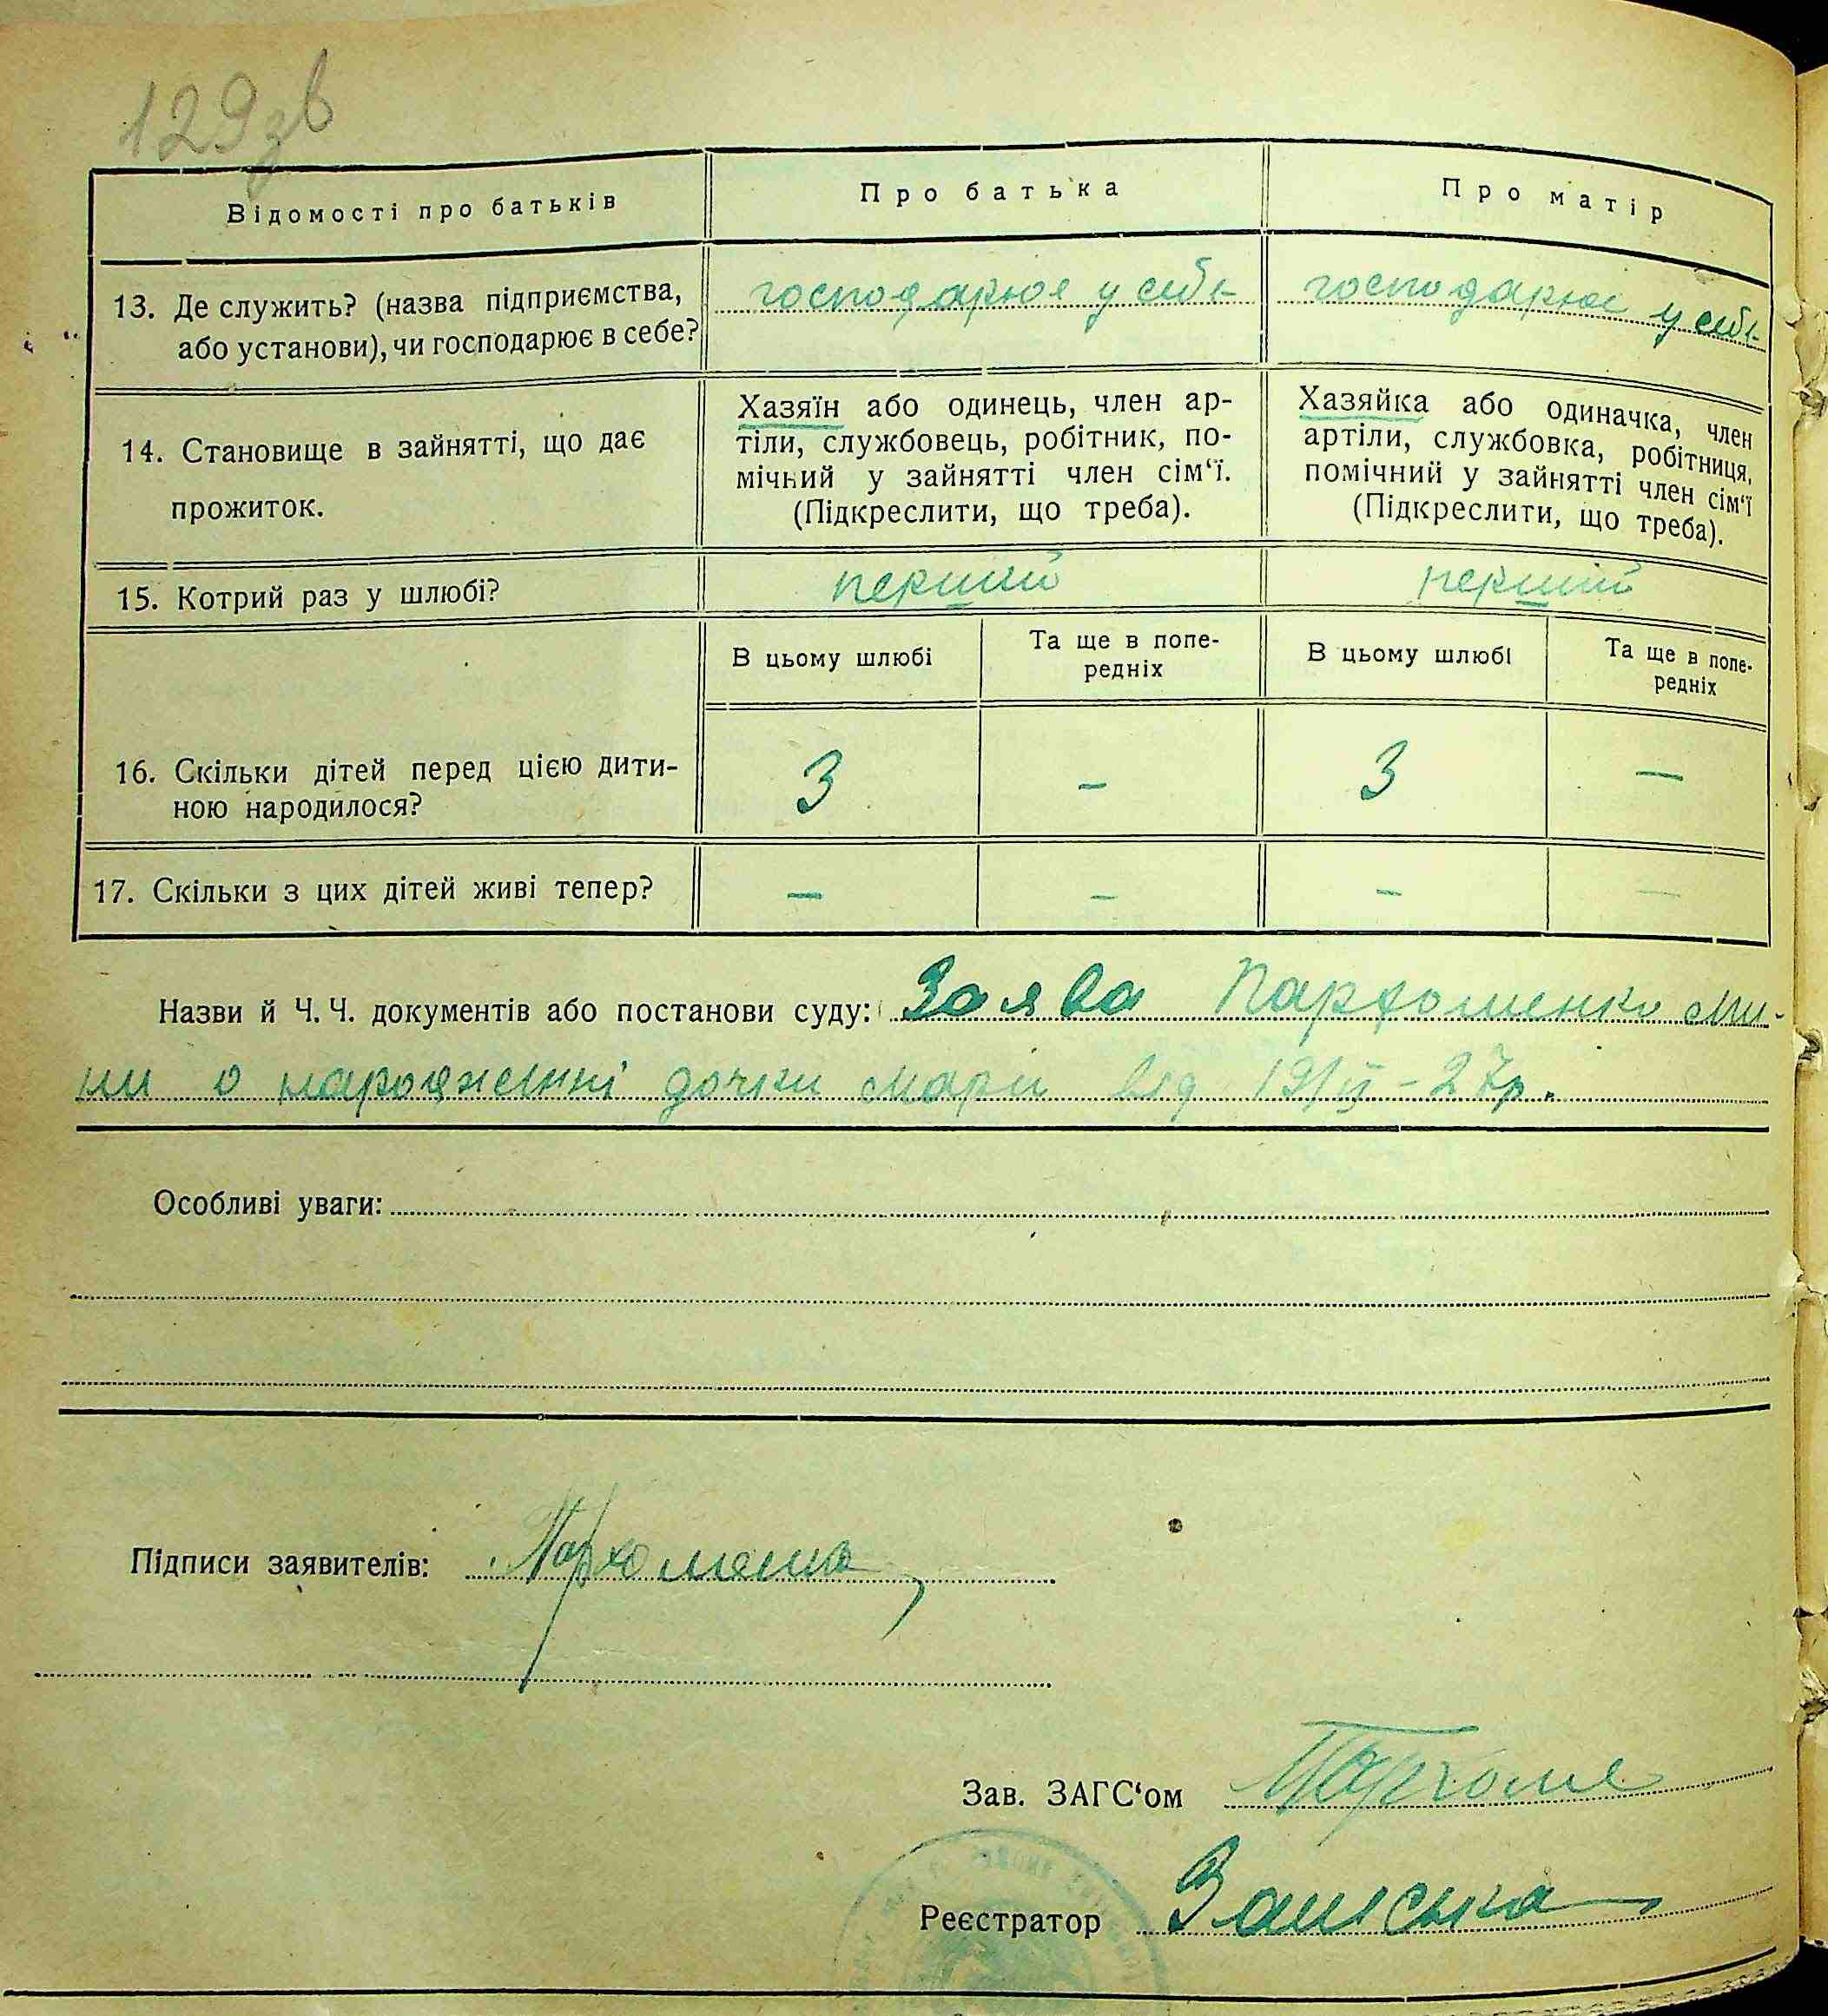 129зв
Відомості про батьків
Про батька
Про матір
13. Де служить? (назва підприємства,
або установи), чи господарює в себе?
господарює у себе
господарює у себе
14. Становище в зайнятті, що дає
прожиток.
Хазяїн або одинець, член ар-
тіли, службовець, робітник, по-
мічний у зайнятті член сім‘ї.
(Підкреслити, що треба).
Хазяйка або одиначка, член
артіли, службовка, робітниця,
помічний у зайнятті член сім‘ї
(Підкреслити, що треба).
15. Котрий раз у шлюбі?
перший
перший
В цьому шлюбі
Та ще в попе-
редніх
В цьому шлюбі
Та ще в попе-
редніх
16. Скільки дітей перед цією дити-
ною народилося?
3
–
3
–
17. Скільки з цих дітей живі тепер?
–
–
–
–
Назви й Ч. Ч. документів або постанови суду: Заява Пархоменко Ми-
ни о народженні дочки Марії від 19/ІІ–27р.
Особливі уваги:
Підписи заявителів: Пархоменко
Зав. ЗАГС‘ом Пархоме
Реєстратор